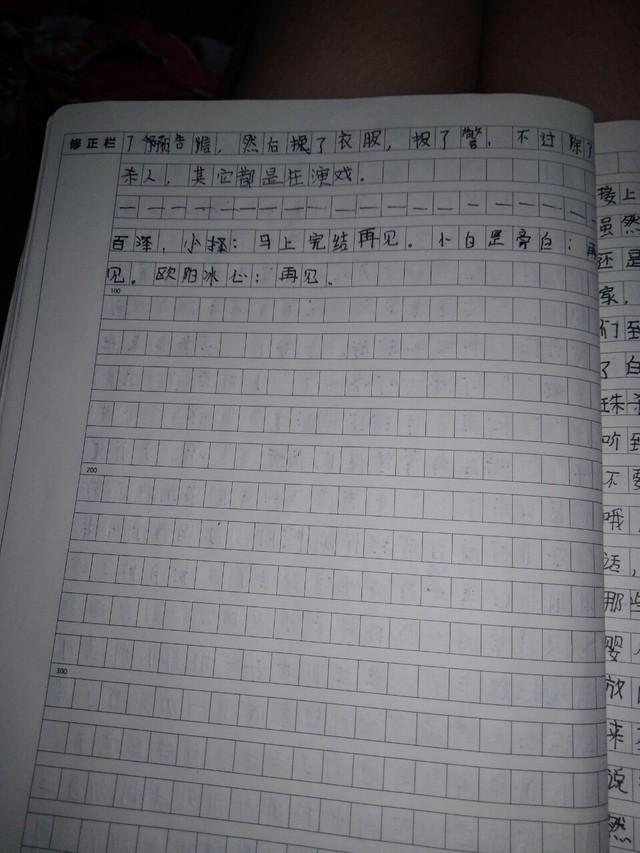 修正栏
了预告信，然后换了衣服，报了警，不过除了
杀人，其它都是在演戏。
—————————————————
百泽，小择：马上完结再见。小白是旁白：再
见。欧阳冰心：再见。
100
200
300
接上
虽然
还是
家，
们到
了白
珠杀
听到
不要
哦
话，
那些
婴
放
来
说
然